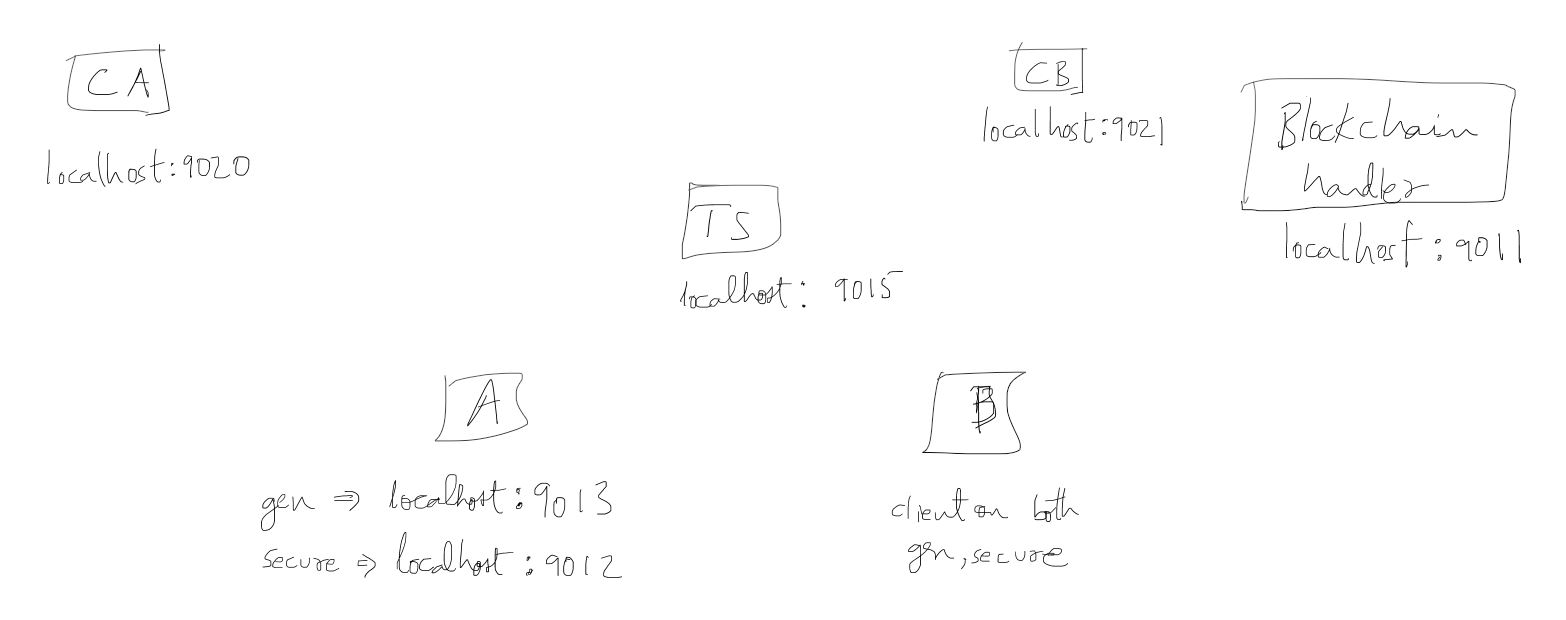 CA
localhost:9020
CB
localhost:9021
Blockchain
handler
localhost:9011
TS
localhost: 9015
A
gen ⇒ localhost:9013
secure ⇒ localhost:9012
B
client on both
gen, secure